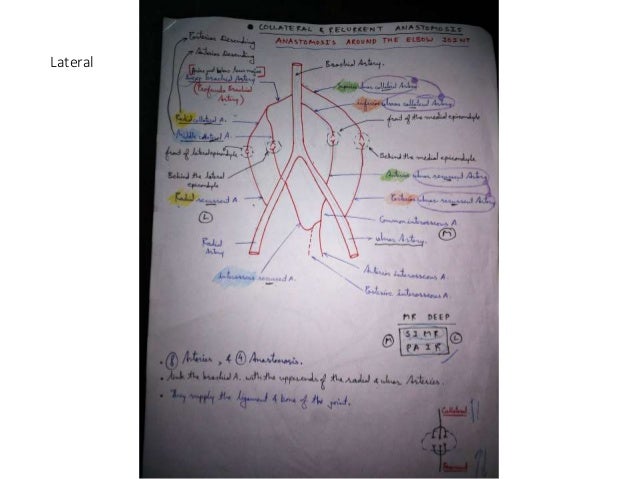 Lateral
• COLLATERAL & RECURRENT ANASTOMOSIS
ANASTOMOSIS AROUND THE ELBOW JOINT
Posterior Descending
Anterior Descending
Brachial Artery.
Brachial Artery
(Profunda Brachial
Artery)
Superior ulnar collateral Artery
inferior ulnar collateral Artery
Radial collateral A.
Middle collateral A.
front of the medial epicondyle
front of lateral epicondyle
Behind the medial epicondyle
Behind the lateral
epicondyle
Anterior ulnar recurrent Artery
Radial recurrent A
Posterior ulnar recurrent Artery
L
Common interosseous A
M
Radial
Artery
ulnar Artery.
interosseous recurrent A.
Anterior interosseous A.
Posterior interosseous A.
MR DEEP
M
SIMR
PAIR
L
• 8 Arteries, & 4 Anastomosis.
• link the brachial A. with the upper ends of the radial & ulnar Arteries.
• They supply the ligament & bone of the joint.
Collateral
Recurrent